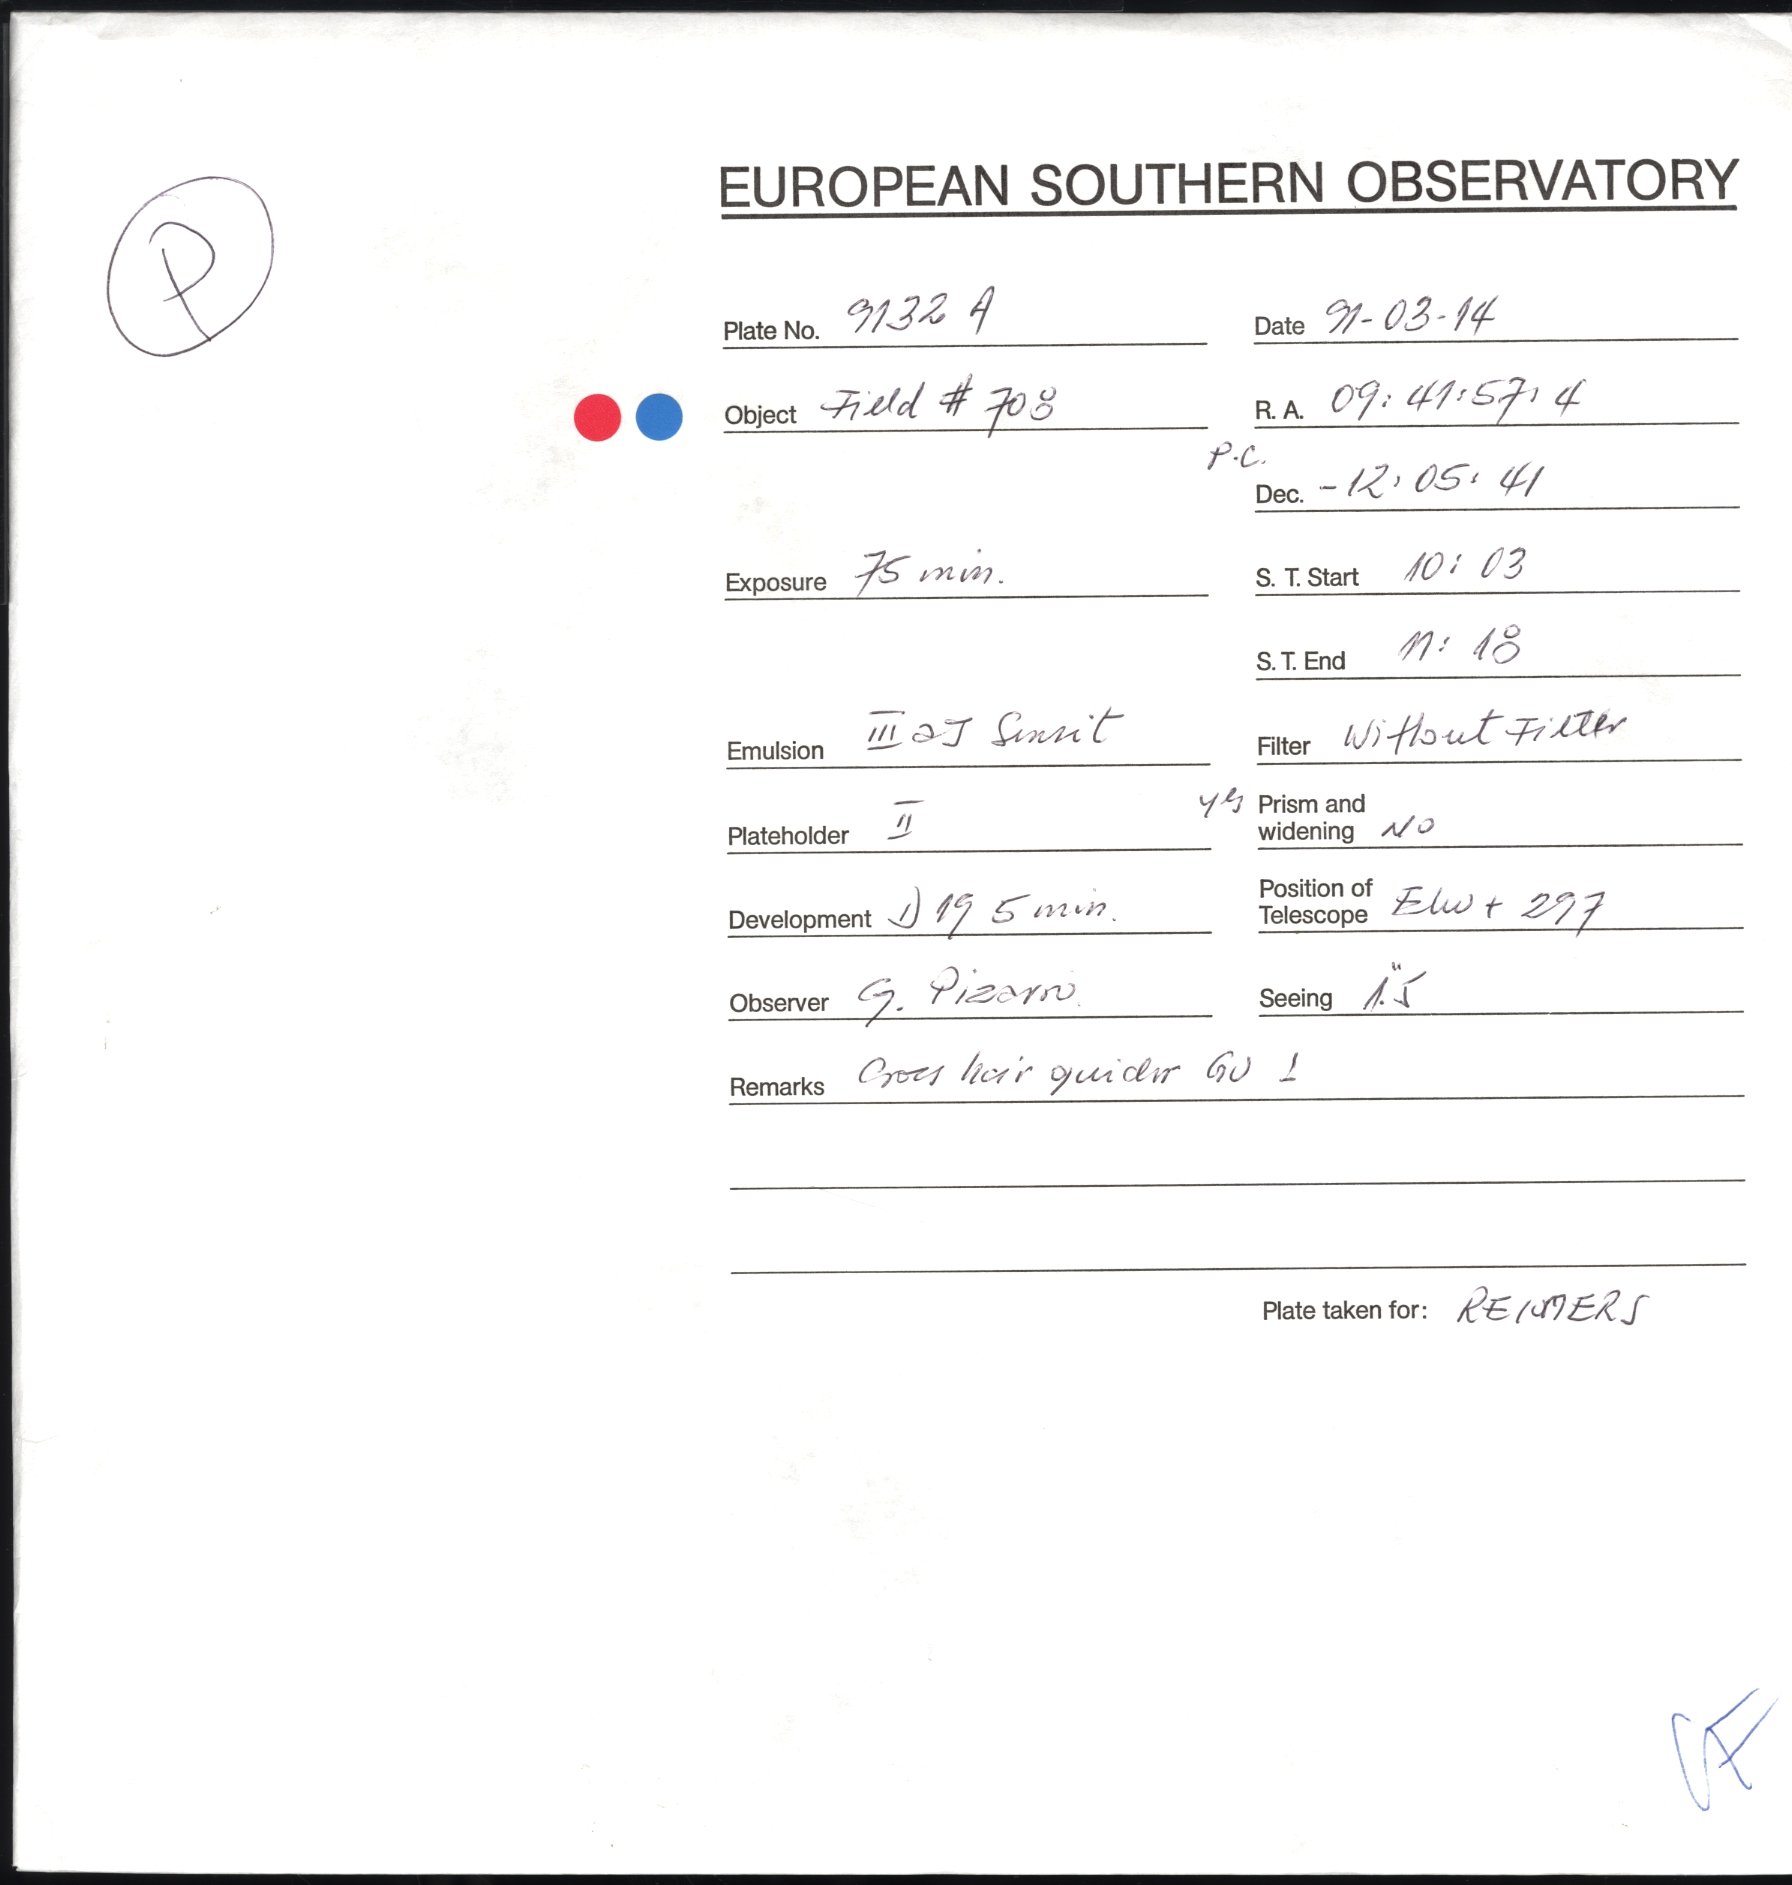 EUROPEAN SOUTHERN OBSERVATORY
P
Plate No. 9132 A
Date 91-03-14
Object Field # 708
R. A. 09:41:57:4
P.C.
Dec. -12:05:41
Exposure 75 min.
S. T. Start 10:03
S. T. End 11:18
Emulsion III aJ Sensit
Filter Without Filter
Plateholder II
yes Prism and
widening NO
Development 19 5 min.
Position of
Telescope EW + 297
Observer G. Pizarro
Seeing 1".5
Remarks Cross hair guider GU 1
Plate taken for: REIMERS